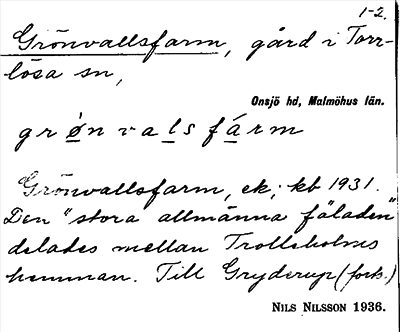 1-2.
Grönvallsfarm, gård i Torr-
lösa sn,
Onsjö hd, Malmöhus län.
grø̀n vals fárm
Grönvallsfarm, ek; kb 1931.
Den "stora allmänna fäladen"
delades mellan Trolleholms
hemman. Till Gryderup (forts.)
NILS NILSSON 1936.